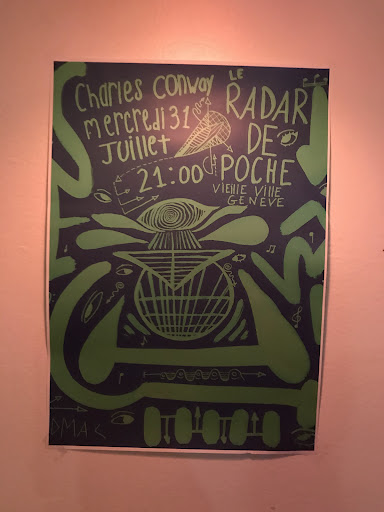 Charles Conway
mercredi 31
Juillet
21:00
LE
RADAR
DE
POCHE
VIEIlE VIllE
GENEVE
DMAC